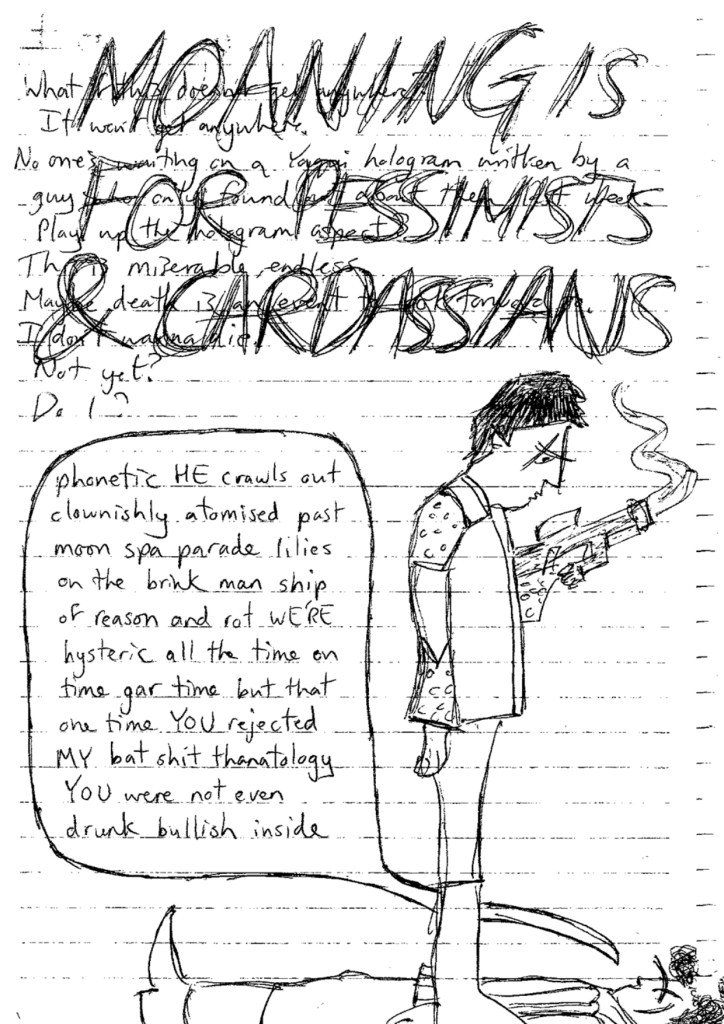 MOANING IS
FOR PESSIMISTS
& CARDASSIANS
What if this doesn't get anywhere?
It won't get anywhere.
No one's waiting on a hologram written by a
guy who only found out about them last week.
Play up the hologram aspect.
This is miserable, endless.
Maybe death is an event to look forward to.
I don't wanna die.
Not yet?
Do I?
phonetic HE crawls out
clownishly atomised past
moon spa parade lilies
on the brink man ship
of reason and rot WE'RE
hysteric all the time on
time gar time but that
one time YOU rejected
MY bat shit thanatology
YOU were not even
drunk bullish inside